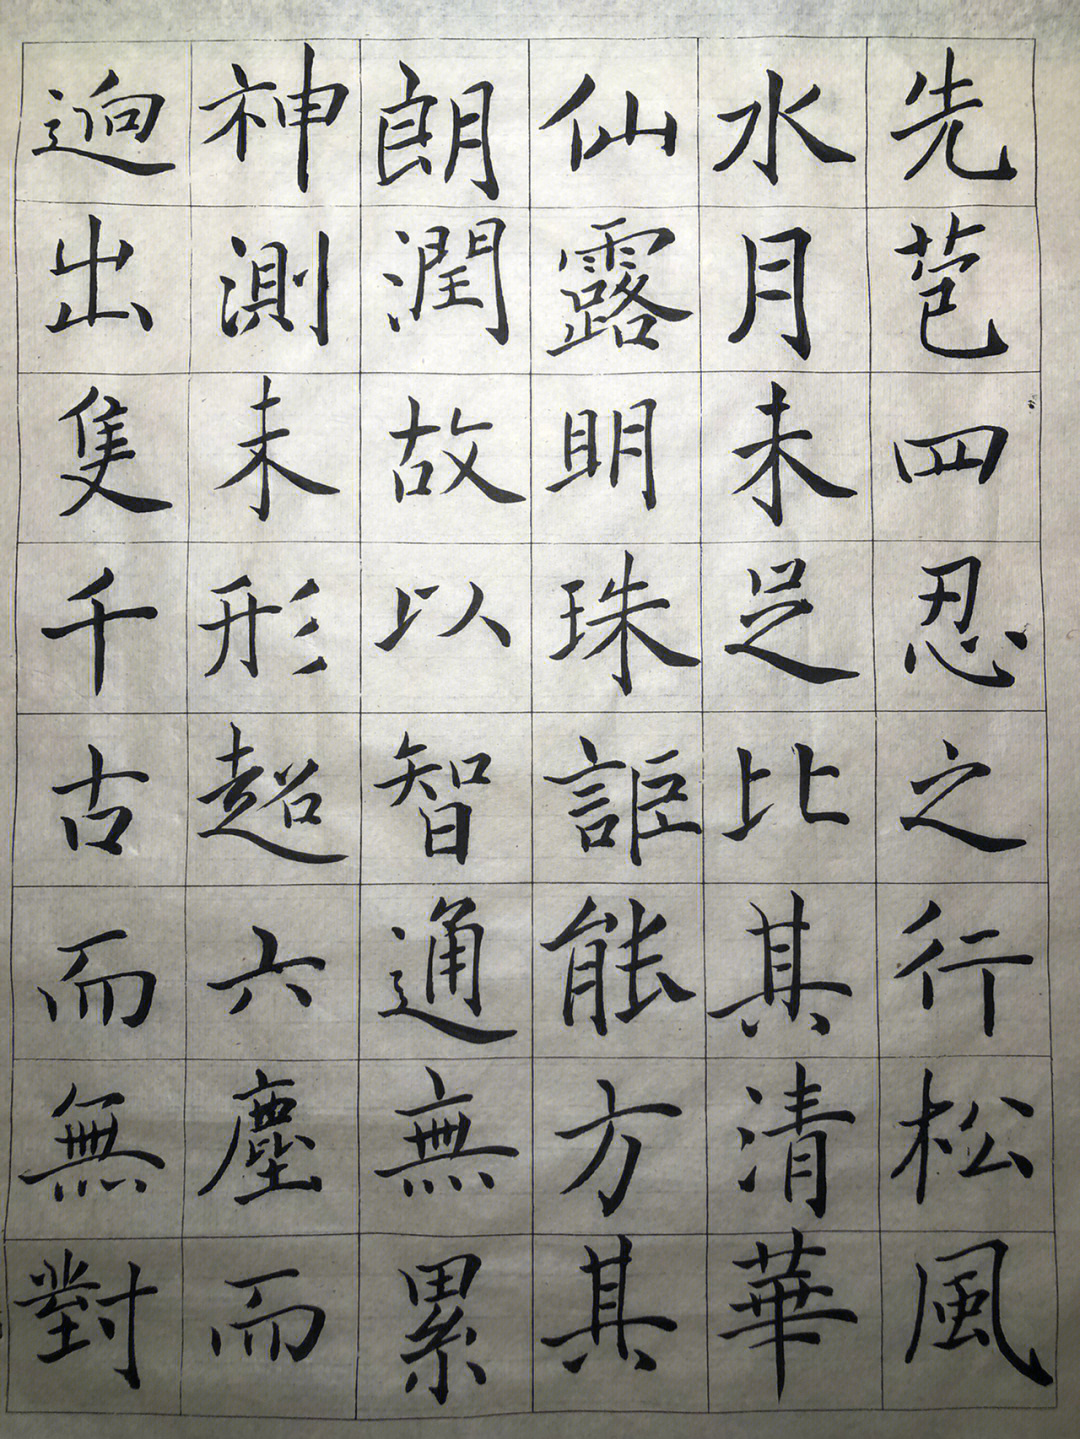 先苞四忍之行松風
水月未足比其清華
仙露明珠詎能方其
朗潤故以智通無累
神測未形超六塵而
逈出隻千古而無對